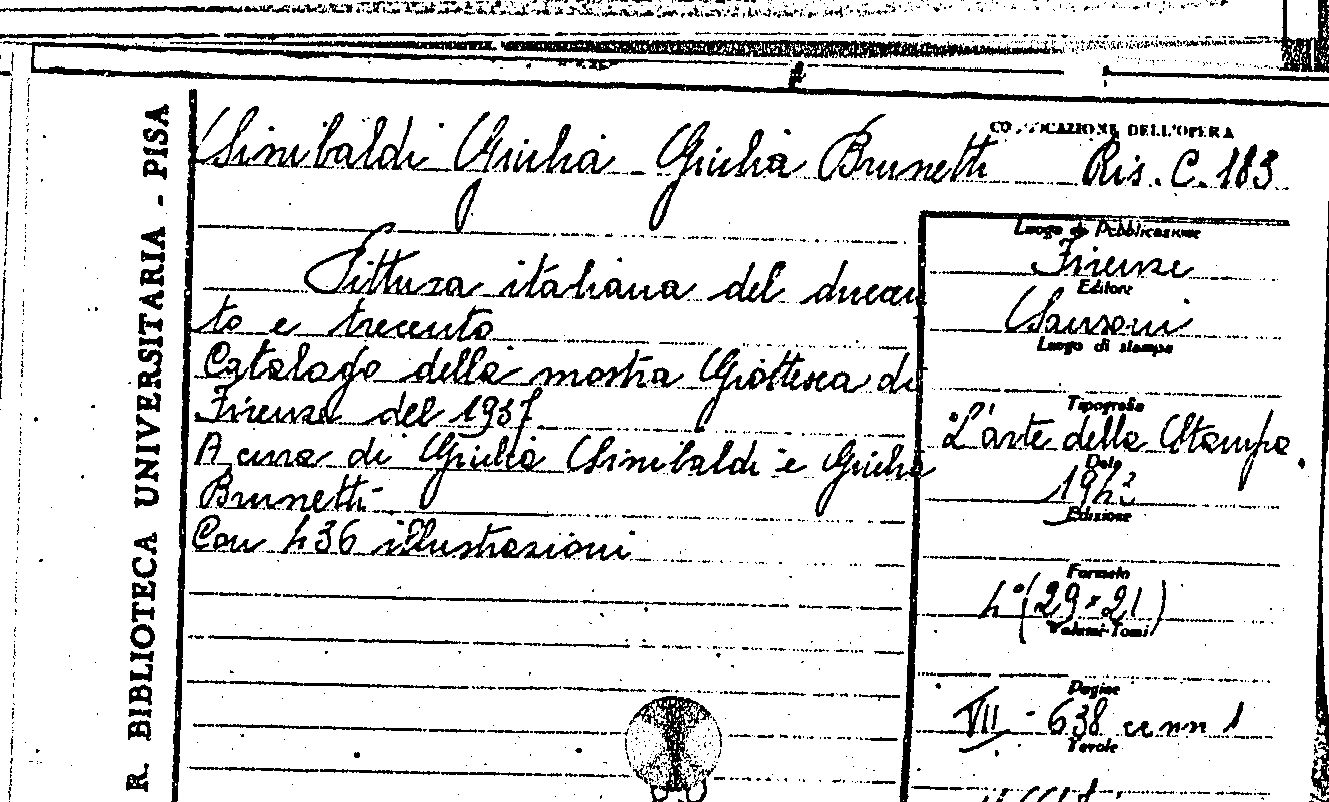 R. BIBLIOTECA UNIVERSITARIA - PISA
Sinibaldi Giulia - Giulia Brunetti
COLLOCAZIONE DELL'OPERA
Ris. C. 183
Pittura italiana del ducen
to e trecento
Catalogo della mostra Giottesca di
Firenze del 1937
A cura di Giulia Sinibaldi e Giulia
Brunetti
Con 436 illustrazioni
Luogo di Pubblicazione
Firenze
Editore
Sansoni
Luogo di stampa
Tipografia
L'arte della Stampa
Data
Edizione
Formato
4° (29 × 21)
Volumi-Tomi
Pagine
VII - 638 cc nn 1
Tavole